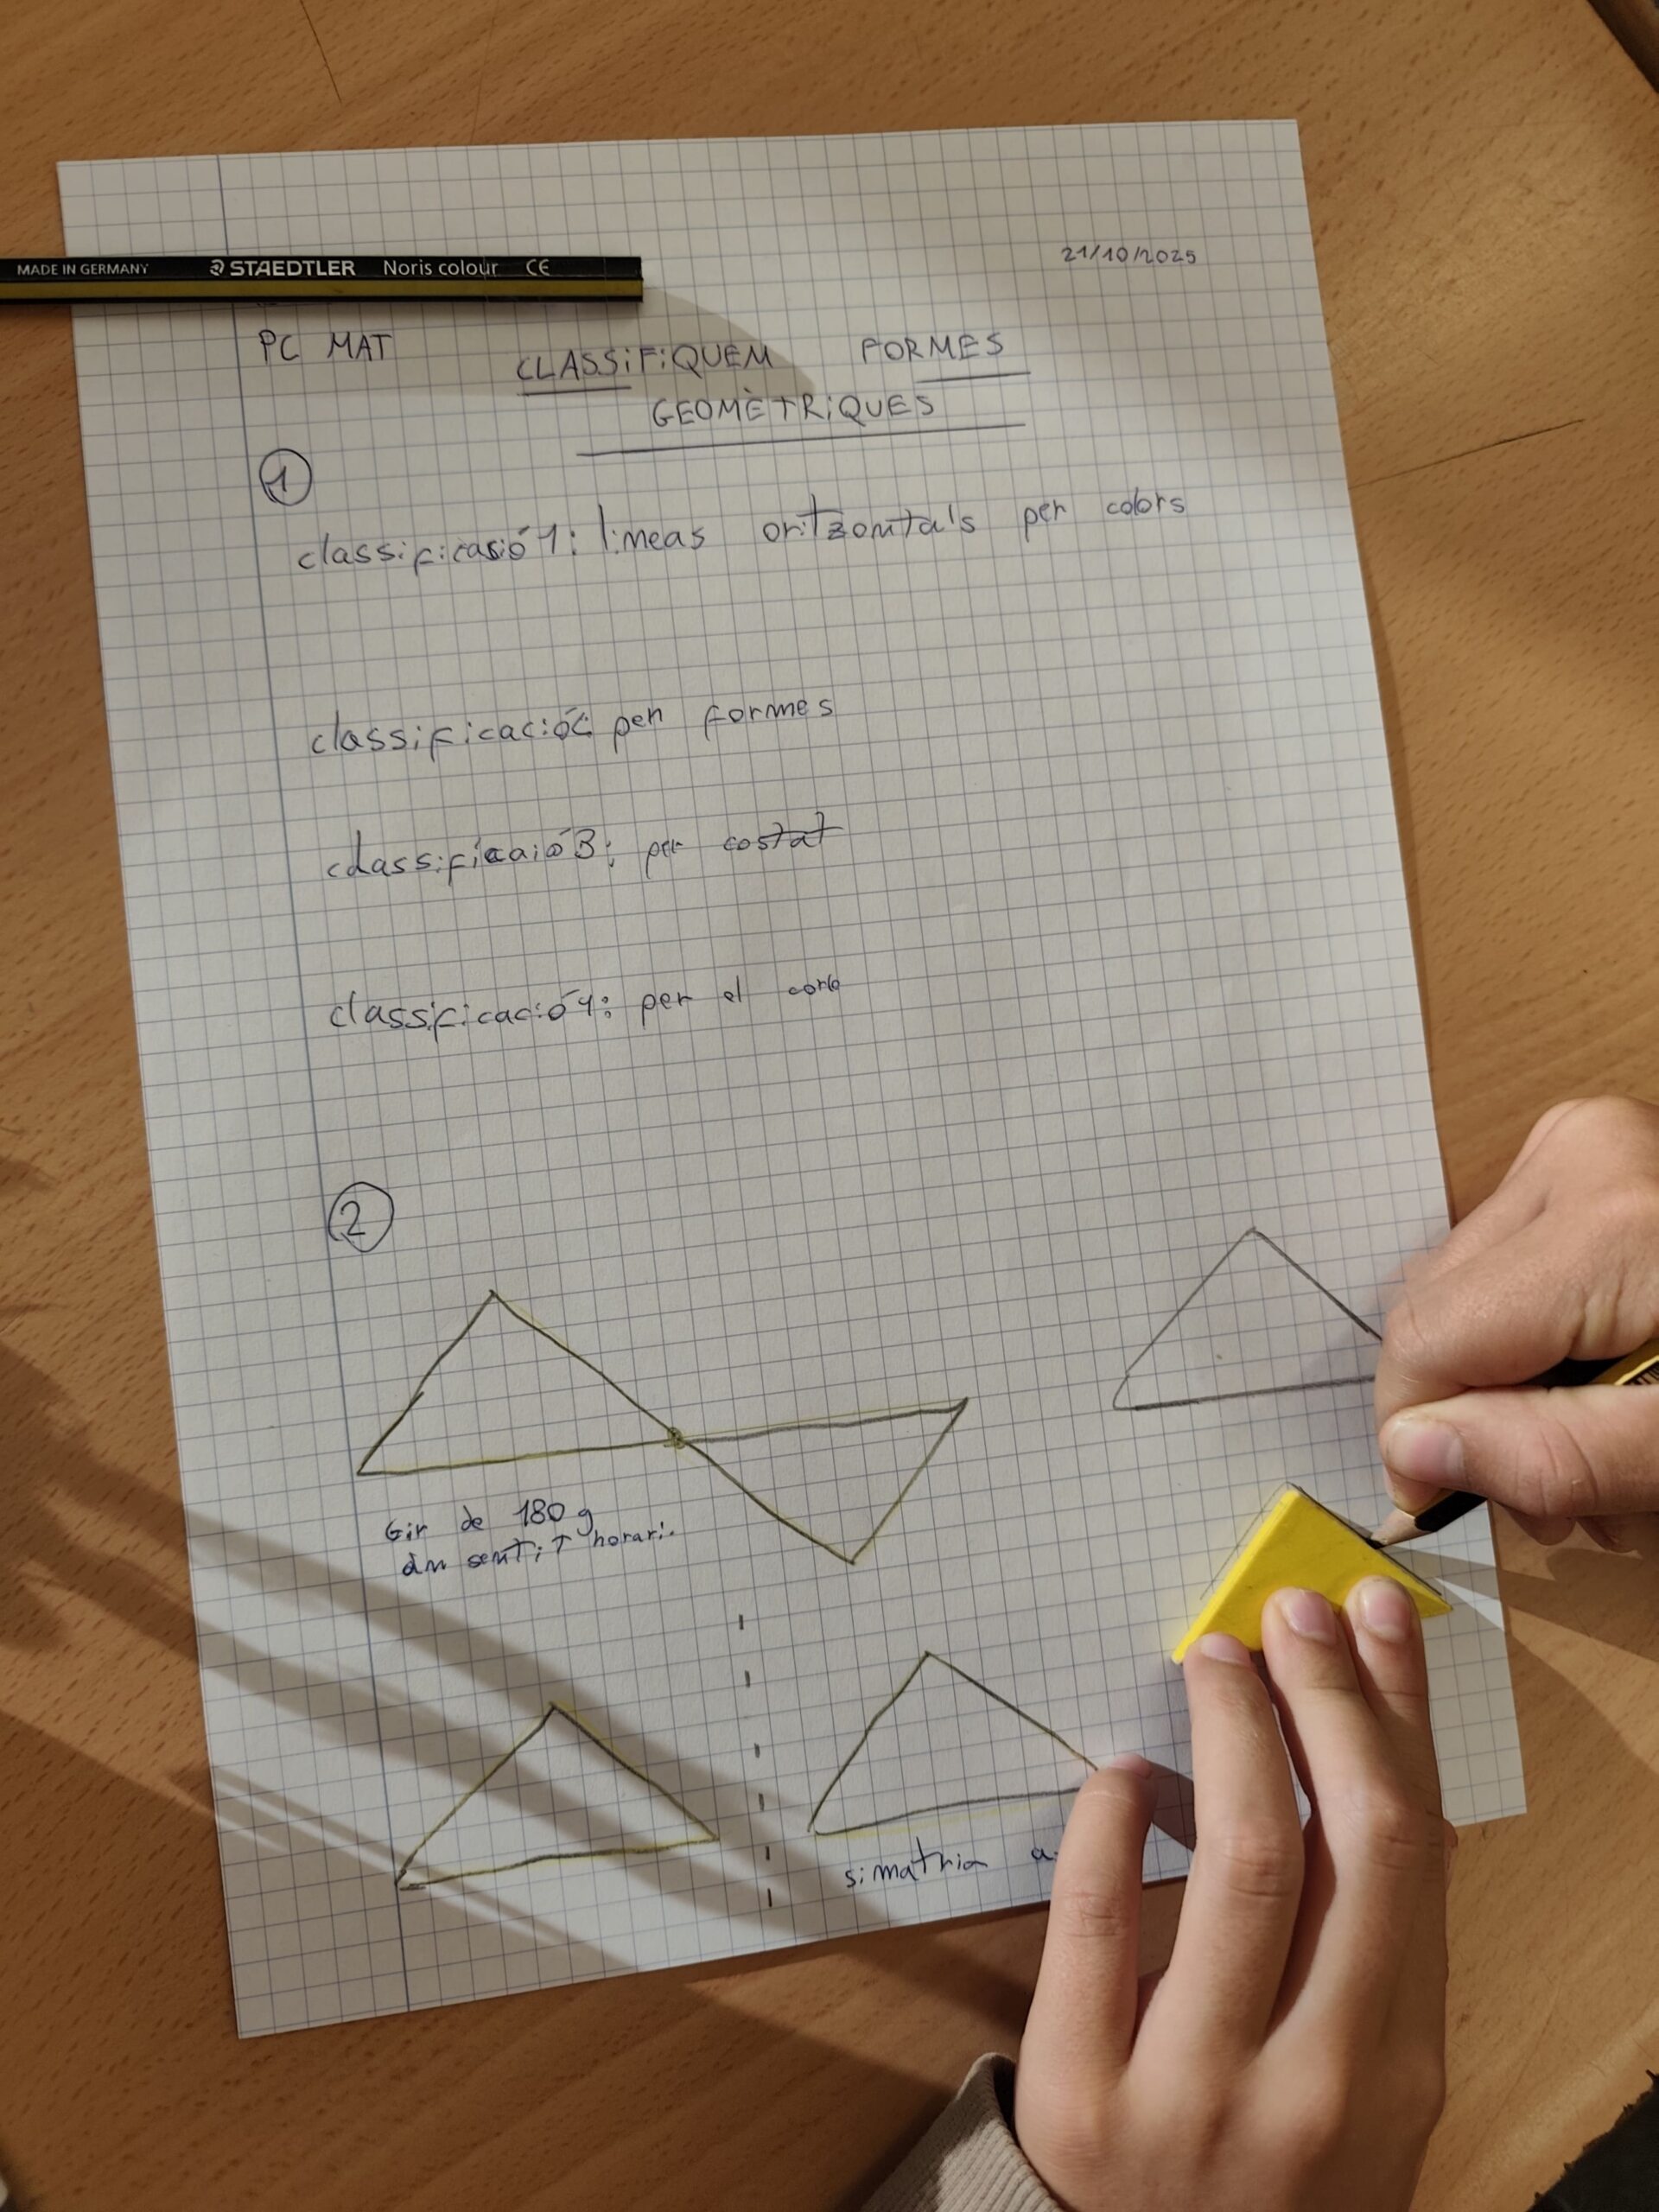 MADE IN GERMANY STAEDTLER Noris colour CE
21/10/2025
PC MAT
CLASSiFiQUEM FORMES
GEOMÈTRiQUES
1
classificasió 1: lineas oritzontals per colors
classificació per formes
classificaió 3: per costat
classificació 4: per el
2
Gir de 180 g
en sentit horari.
simatria